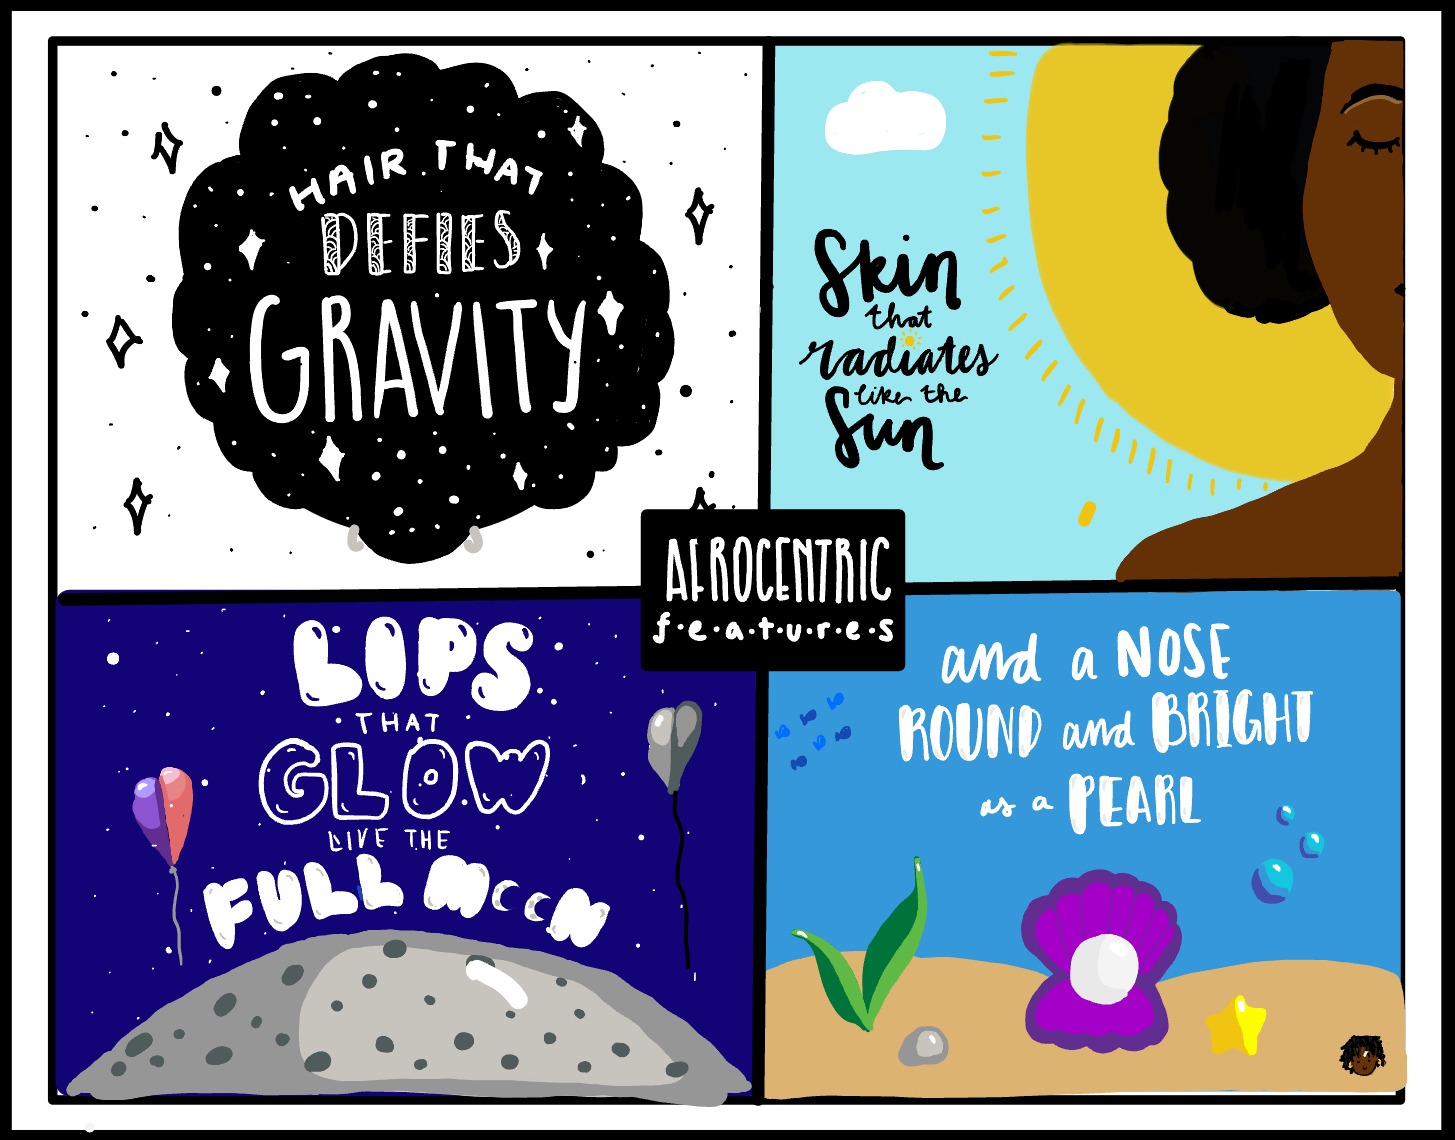 HAIR THAT
DEFIES
GRAVITY
Skin
that
radiates
like the
Sun
AFROCENTRIC
f·e·a·t·u·r·e·s
LIPS
THAT
GLOW
LIVE THE
FULL MOON
and a NOSE
ROUND and BRIGHT
as a PEARL